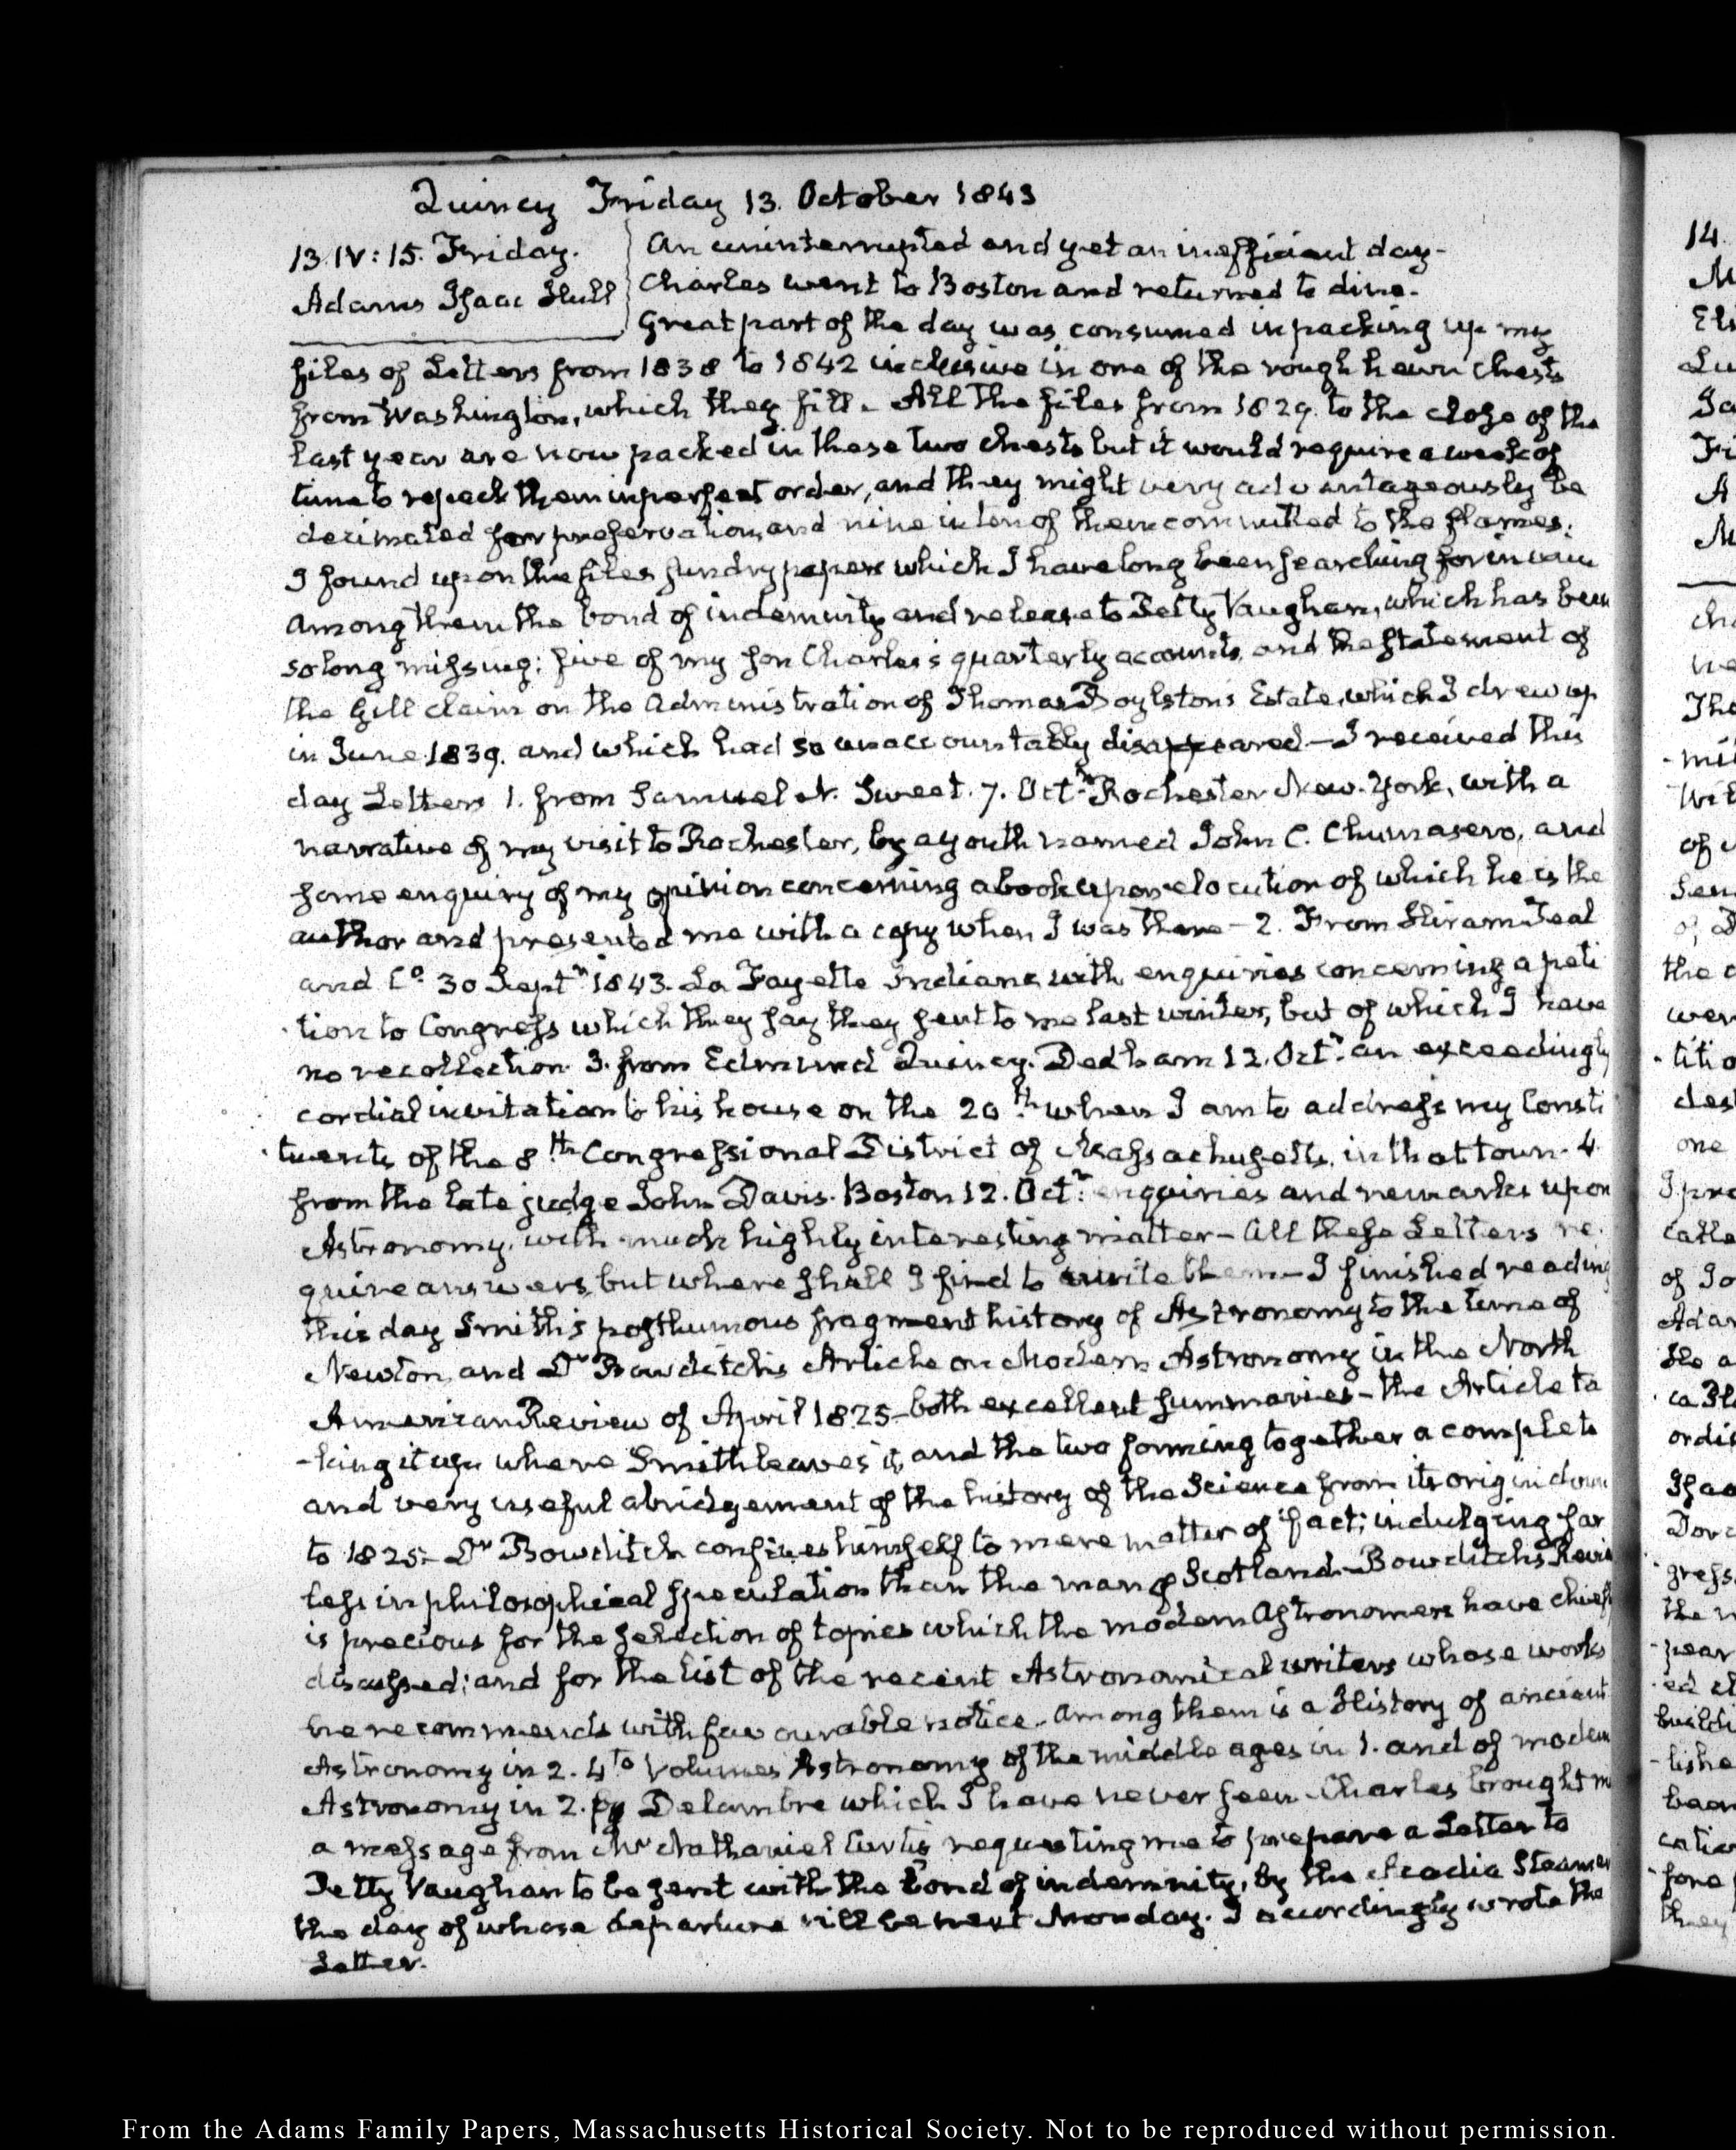 Quincy Friday 13. October 1843
13. IV: 15. Friday.
Adams Isaac Hull
An uninterrupted and yet an inefficient day-
Charles went to Boston and returned to dine.
Great part of the day was consumed in packing up my
files of Letters from 1838 to 1842 inclusive in one of the rough hewn chests
from Washington, which they fill. All the files from 1829. to the close of the
last year are now packed in these two chests but it would require a week of
time to repack them in perfect order, and they might very advantageously be
decimated for preservation, and nine in ten of them committed to the flames.
I found upon the files sundry papers which I have long been searching for in vain
Among them the bond of indemnity and release to Petty Vaughan, which has been
so long missing: five of my son Charles's quarterly accounts, and the statement of
the Gill claim on the Administration of Thomas Boylston's Estate, which I drew up
in June 1839. and which had so unaccountably disappeared - I received this
day Letters 1. from Samuel N. Sweet. 7. Octr. Rochester New-York, with a
narrative of my visit to Rochester, by a youth named John C. Chumasero, and
some enquiry of my opinion concerning a book upon elocution of which he is the
author and presented me with a copy when I was there - 2. From Hiram Teal
and Co. 30 Septr. 1843. La Fayette Indiana, with enquiries concerning a peti
tion to Congress which they say they sent to me last winter, but of which I have
no recollection. 3. from Edmund Quincy. Dedham 12. Octr. an exceedingly
cordial invitation to his house on the 20th. when I am to address my Consti
tuents of the 8th. Congressional District of Massachusetts, in that town. 4.
from the late judge John Davis. Boston 12. Octr. enquiries and remarks upon
Astronomy, with much highly interesting matter - All these Letters re-
quire answers, but where shall I find to write them - I finished reading
this day Smith's posthumous fragment history of Astronomy to the time of
Newton, and Dr. Bowditch's Article on Modern Astronomy in the North
American Review of April 1825 - both excellent summaries - the Article ta
-king it up where Smith leaves it, and the two forming together a complete
and very useful abridgement of the history of the Science from its origin down
to 1825 - Dr. Bowditch confines himself to mere matter of fact; indulging far
less in philosophical speculation than the man of Scotland. - Bowditch's Revie
is precious for the selection of topics which the modern Astronomers have chiefly
discussed; and for the list of the recent Astronomical writers whose works
he recommends with favourable notice. Among them is a History of ancient
Astronomy in 2. 4to. Volumes Astronomy of the middle ages in 1. and of modern
Astronomy in 2. by Delambre which I have never seen - Charles brought m
a message from Mr. Nathaniel Curtis requesting me to prepare a Letter to
Petty Vaughan to be sent with the bond of indemnity, by the Acadia Steamer
the day of whose departure will be next Monday. I accordingly wrote the
Letter.
From the Adams Family Papers, Massachusetts Historical Society. Not to be reproduced without permission.